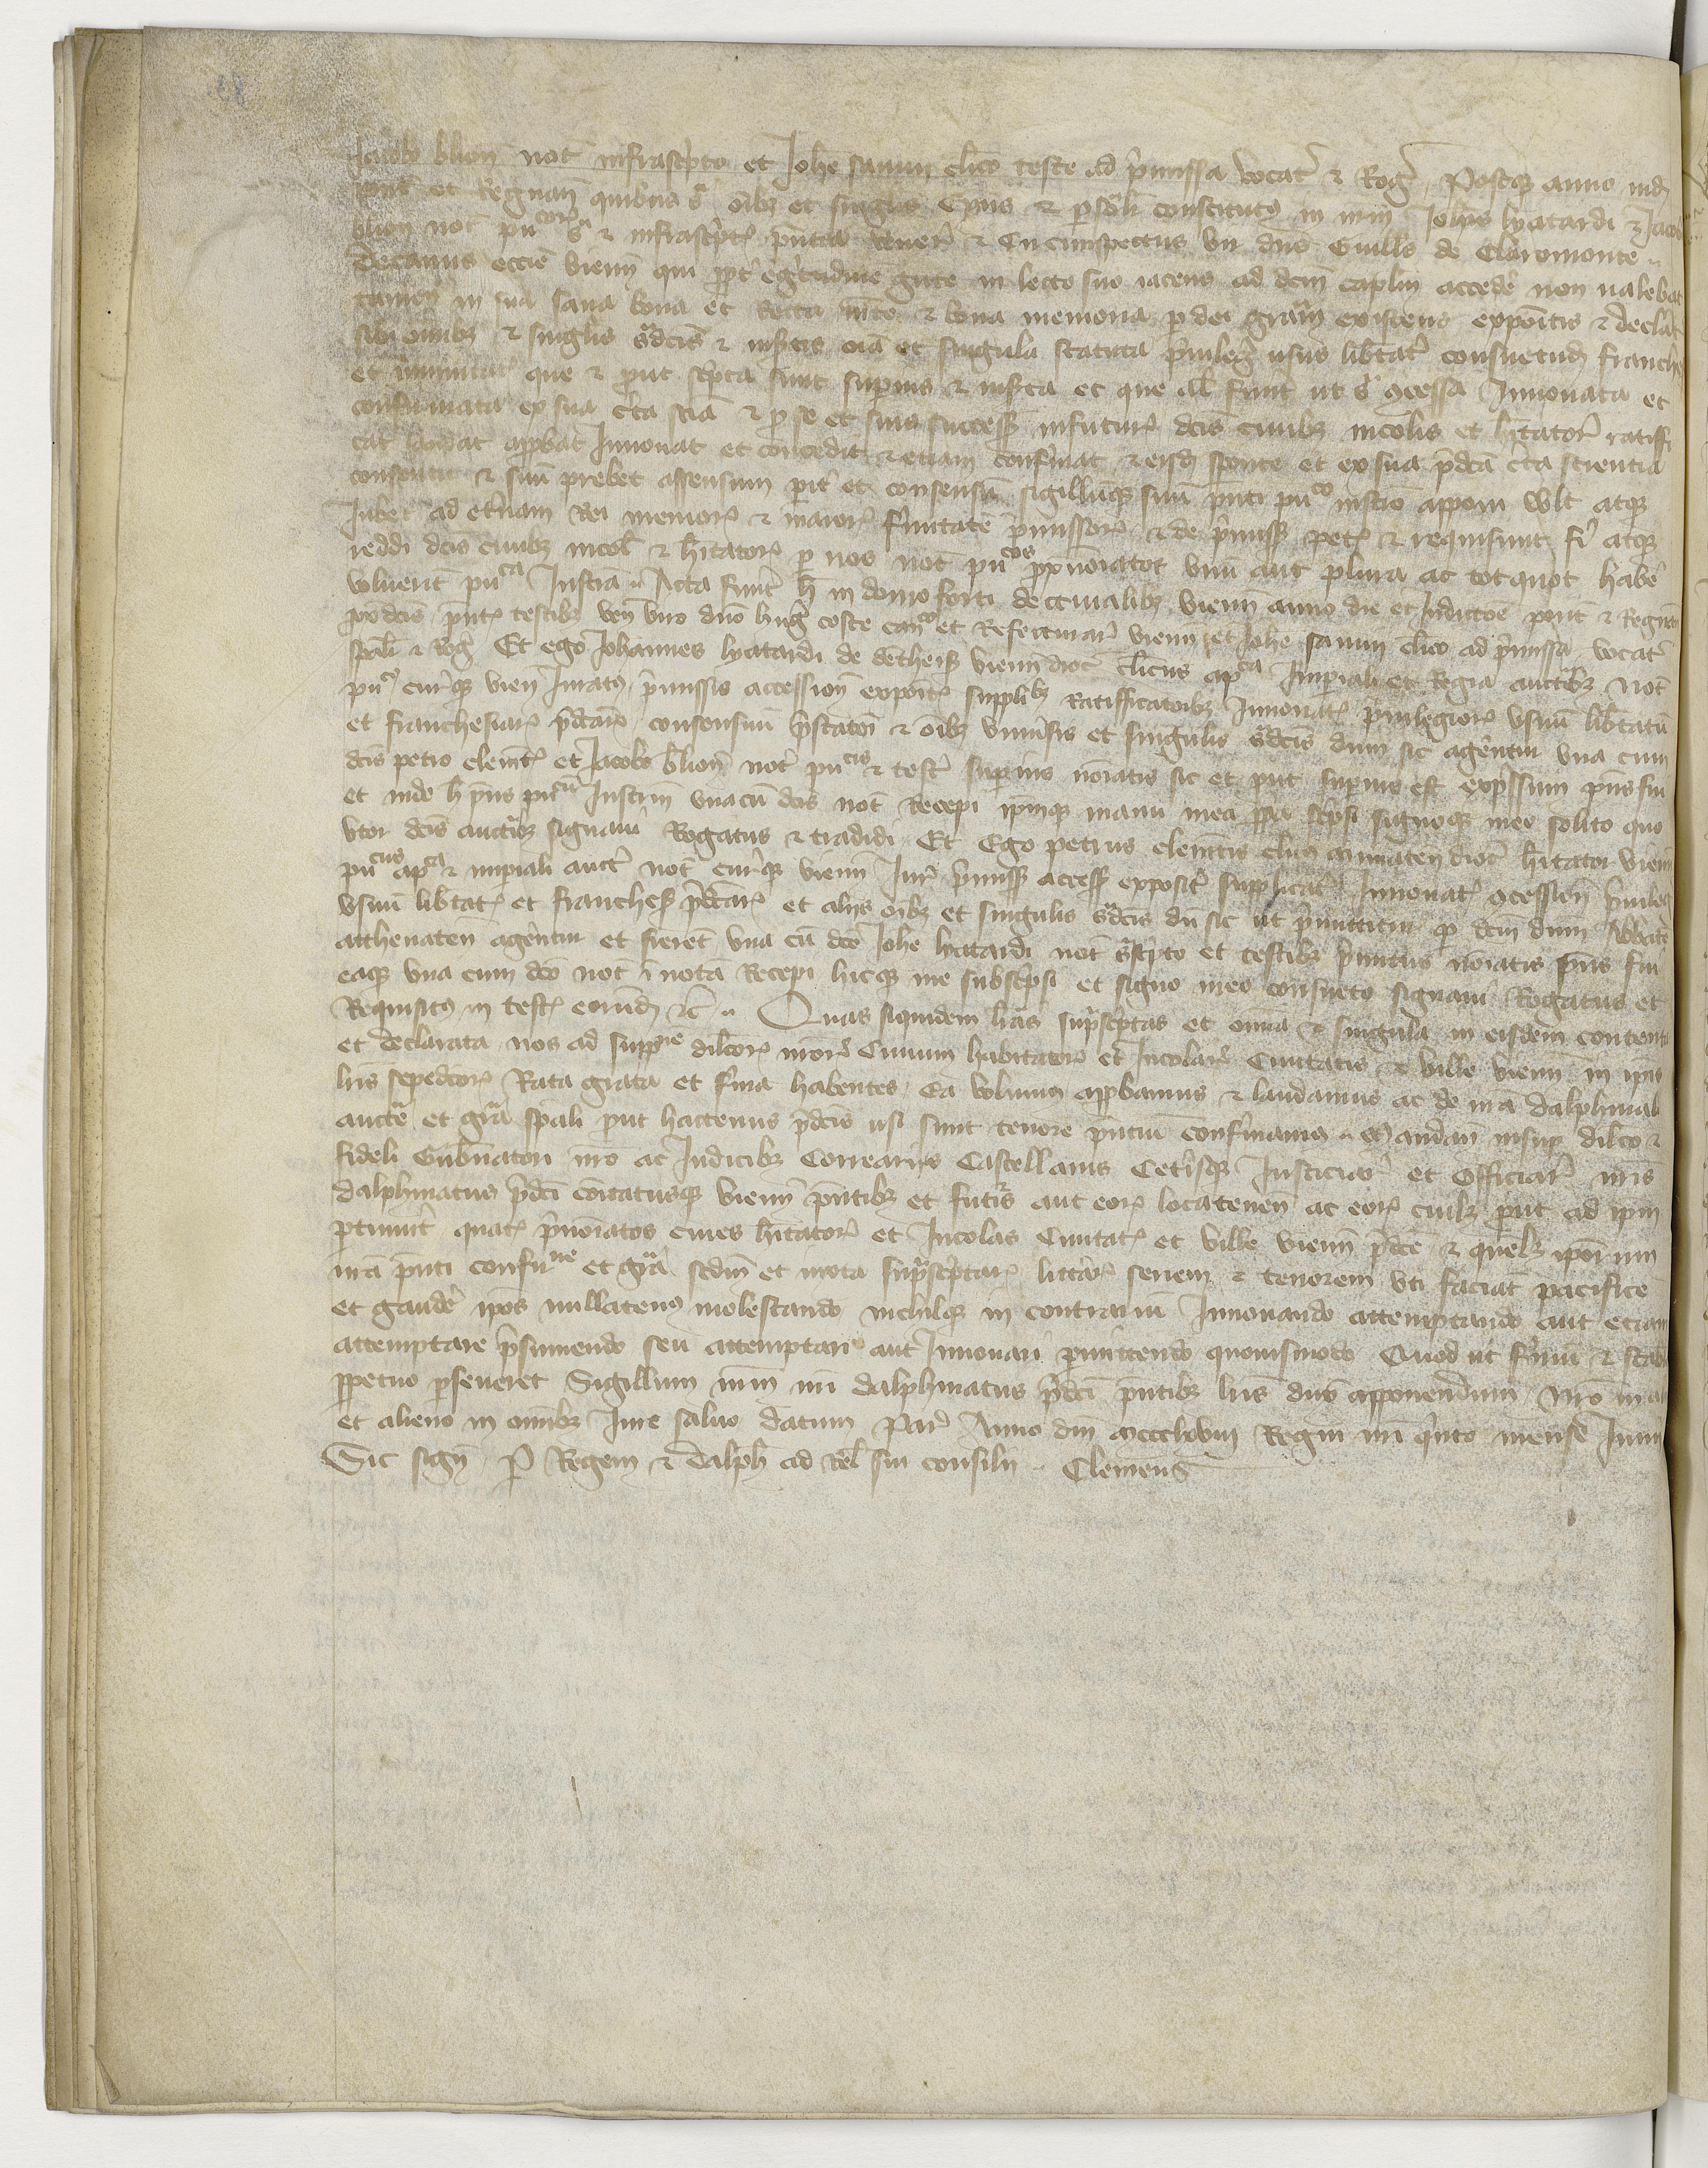 Jacobo blion not infrascripto et Johe sanun clico teste ad pmissa vocat & Rog Postq anno ind
pont et Regnan quibus s oibz et singlis Cpus & psolr constitutus in mm Johis lyatardi & Jacob
blion not pucorz & infrascptz pntia vener & Circumspectus vir dns Guills de Claromonte
Decanus eccie vienn qui ppt egritudine gute in lecto suo iacens ad dcm caplm accede non valebat
tamen in sua sana bona et recta mte & bona memoria p dei gram existens expoitis & declat
sibi oibz & singlis sdcis & infscis oia et singula statuta pvileg usus libtat consuetud franch
et immunitat que & put scpta sunt superius & infsta et que al funt ut s 9cessa Innouata et
confirmata ex sua cta scia & p se et suis success infuturz dcis ciuibz incolis et hitator ratiffi
cat laudat appbat Innouat et concedit & etiam confirmat & eisd sponte et ex sua pdca cta scientia
consentit & suu prebet assensum pit et consensu sigilluq suu pnti puco instro apponi vult atq
Jubet ad etnam Rei memorz & maiorz firmitate pmissorz & de pmiss petz & requisiunt fi atq
reddi dcis ciuibz incol & hitatorz p nos not pucos pxnoiatos vnu aut plura ac totquot habe
voluerit puca Instra Acta funt h in domo forti de ccuualibz vienn anno die et Indictoe pont & Regnan
pdcis pntz testibz ven viro dno hug coste canco et Refectuar vienn et Johe sanun clico ad pmissa vocat
spali & Rog Et ego Johannes lyatardi de dentheis vienn dioc clicus apca Imperiali et Regia auctbz not
puc curieq vien Juratus pmissis accession expoitz supplibz ratifficatoibz Innouatz pvilegiorz vsuu libtatu
et franchesiarz pdcarz consensuu pstatoi & oibz vniusis et singulis sdcis dum sic agentur vna cum
dcis petro clemtz et Jacobo blion not pucis & testz superius noiatis sic et put superius est expssum pns fui
et inde h pns pucu Instrm vnacu dcis not Recepi ipmq manu mea ppa scpsi signoq meo solito quo
vtor dcis auctbz signaui Rogatus & tradidi Et Ego petrus clemtis clicus dioc hitator vienn
pucus apca & impiali auct not curieq vienn Jur pmiss access exposit supplicat Innouatz 9cession pvileg
vsuu libtatz et franches pdcarz et alijs oibz et singulis sdcis du sic ut pmittitur p dcm dnm Abbate
atthenaten agentur et fierent vna cu dco Johe lyatardi not sscpto et testibz pmitus noiatis pns fui
eaq vna cum dco not i nota Recepi hicq me subscpsi et signo meo consueto signaui Rogatus et
Requisitus in testz eorund &c Quas siquidem lras supscptas et omia & singula in eisdem contenta
et declarata nos ad suppne dilcorz nror Ciuium habitatorz et Incolarz Ciuitatis & ville vienn in ipis
lris sepedcorz Rata grata et firma habentes Ea volumus appbamus & laudamus ac de nra dalphinali
aucte et gra spali put hactenus pdcis usi sunt tenore pntiu confirmamus Mandan insup dilco &
fideli Gubnatori nro ac Judicibz Correariis Castellanis Cetisq Justiciar et Officiar nris
dalphinatus pdci coitatusq vienn pntibz et futuris aut eorz locatenen ac eorz cuilz put ad ipm
ptinuit quatz pnoiatos ciues hitatorz et Incolas Ciuitatz et ville vienn pdce & quelz ipor nra
nra pnti confirne et gra sedm et iuxta supscptarz litterz seriem & tenorem vti faciat pacifice
et gaude ipos nullatenus molestando nichilq in contrariu Innouando attemptando aut etiam
attemptare psumendo seu attemptari aut Innouari pmittendo quouismodo Quod ut firmu & stabile
ppetuo pseueret Sigillum nrm nri dalphinatus pdci pntibz lris dux apponendum Nro in al
et alieno in omibz Jure saluo Datum Par Anno dni Regni nri qnto mense Junii
Sic sign P Regem & dalph ad rel sui consilii Clemens